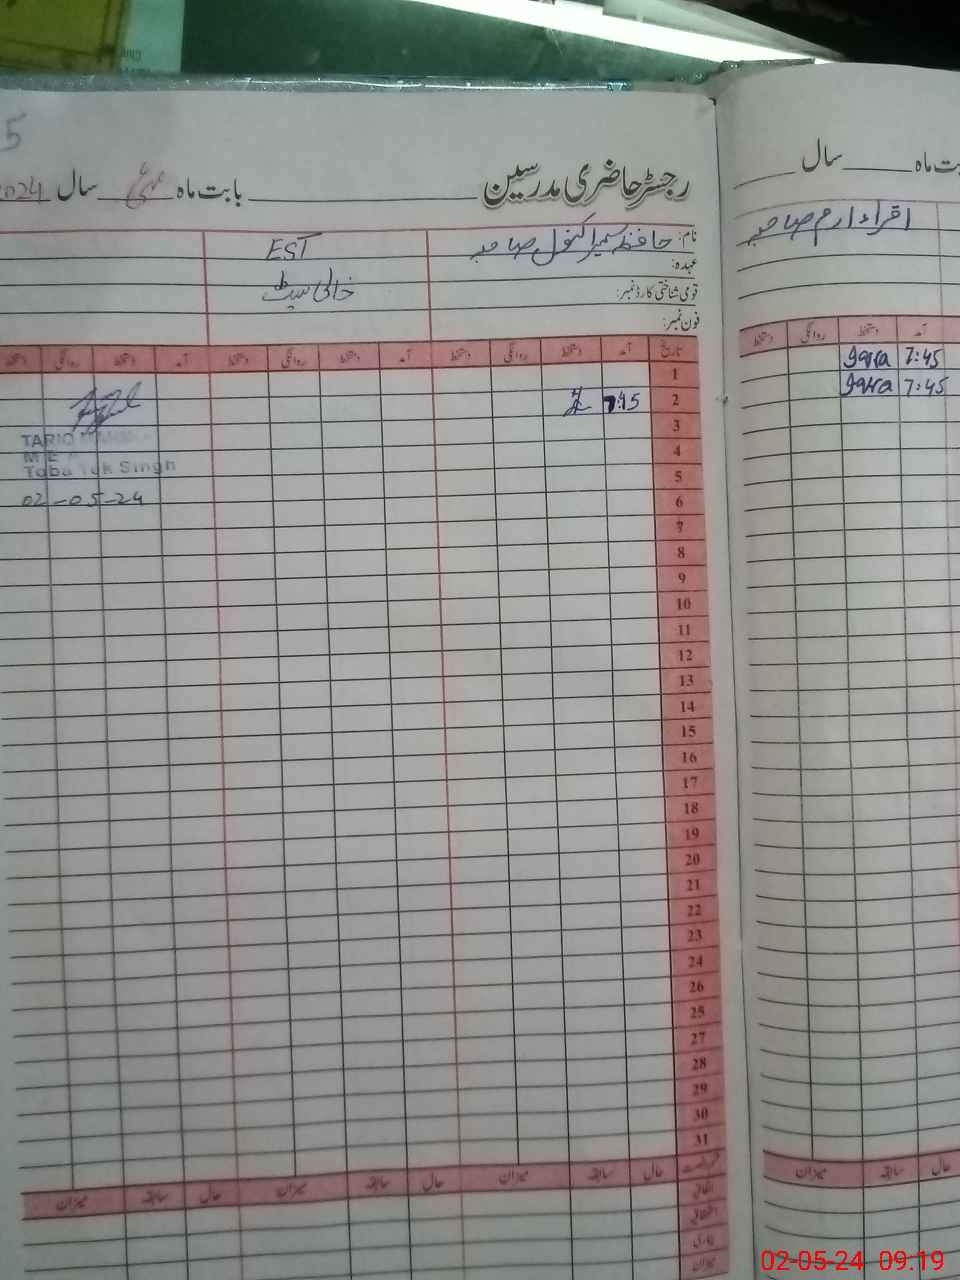 5
رجسٹر حاضری مدرسین بابت ماہ مئی سال 2024
نام: حافظہ سمیرا کنول صاحبہ
EST
عہدہ:
قومی شناختی کارڈ نمبر:
خالی سیٹ
فون نمبر:
تاریخ آمد دستخط روانگی دستخط آمد دستخط روانگی دستخط آمد دستخط روانگی دستخط
1
2 7:45
3
4
5
6
7
8
9
10
11
12
13
14
15
16
17
18
19
20
21
22
23
24
26
25
27
28
29
30
31
TARIQ
M E A
Toba Tek Singh
02-05-24
حال سابقہ میزان حال سابقہ میزان حال سابقہ میزان
اتفاقی
بیماری
میزان
بابت ماہ سال
اقراء ارم صاحبہ
آمد دستخط روانگی دستخط
7:45 Iqra
7:45 Iqra
حال سابقہ میزان
02-05-24 09:19